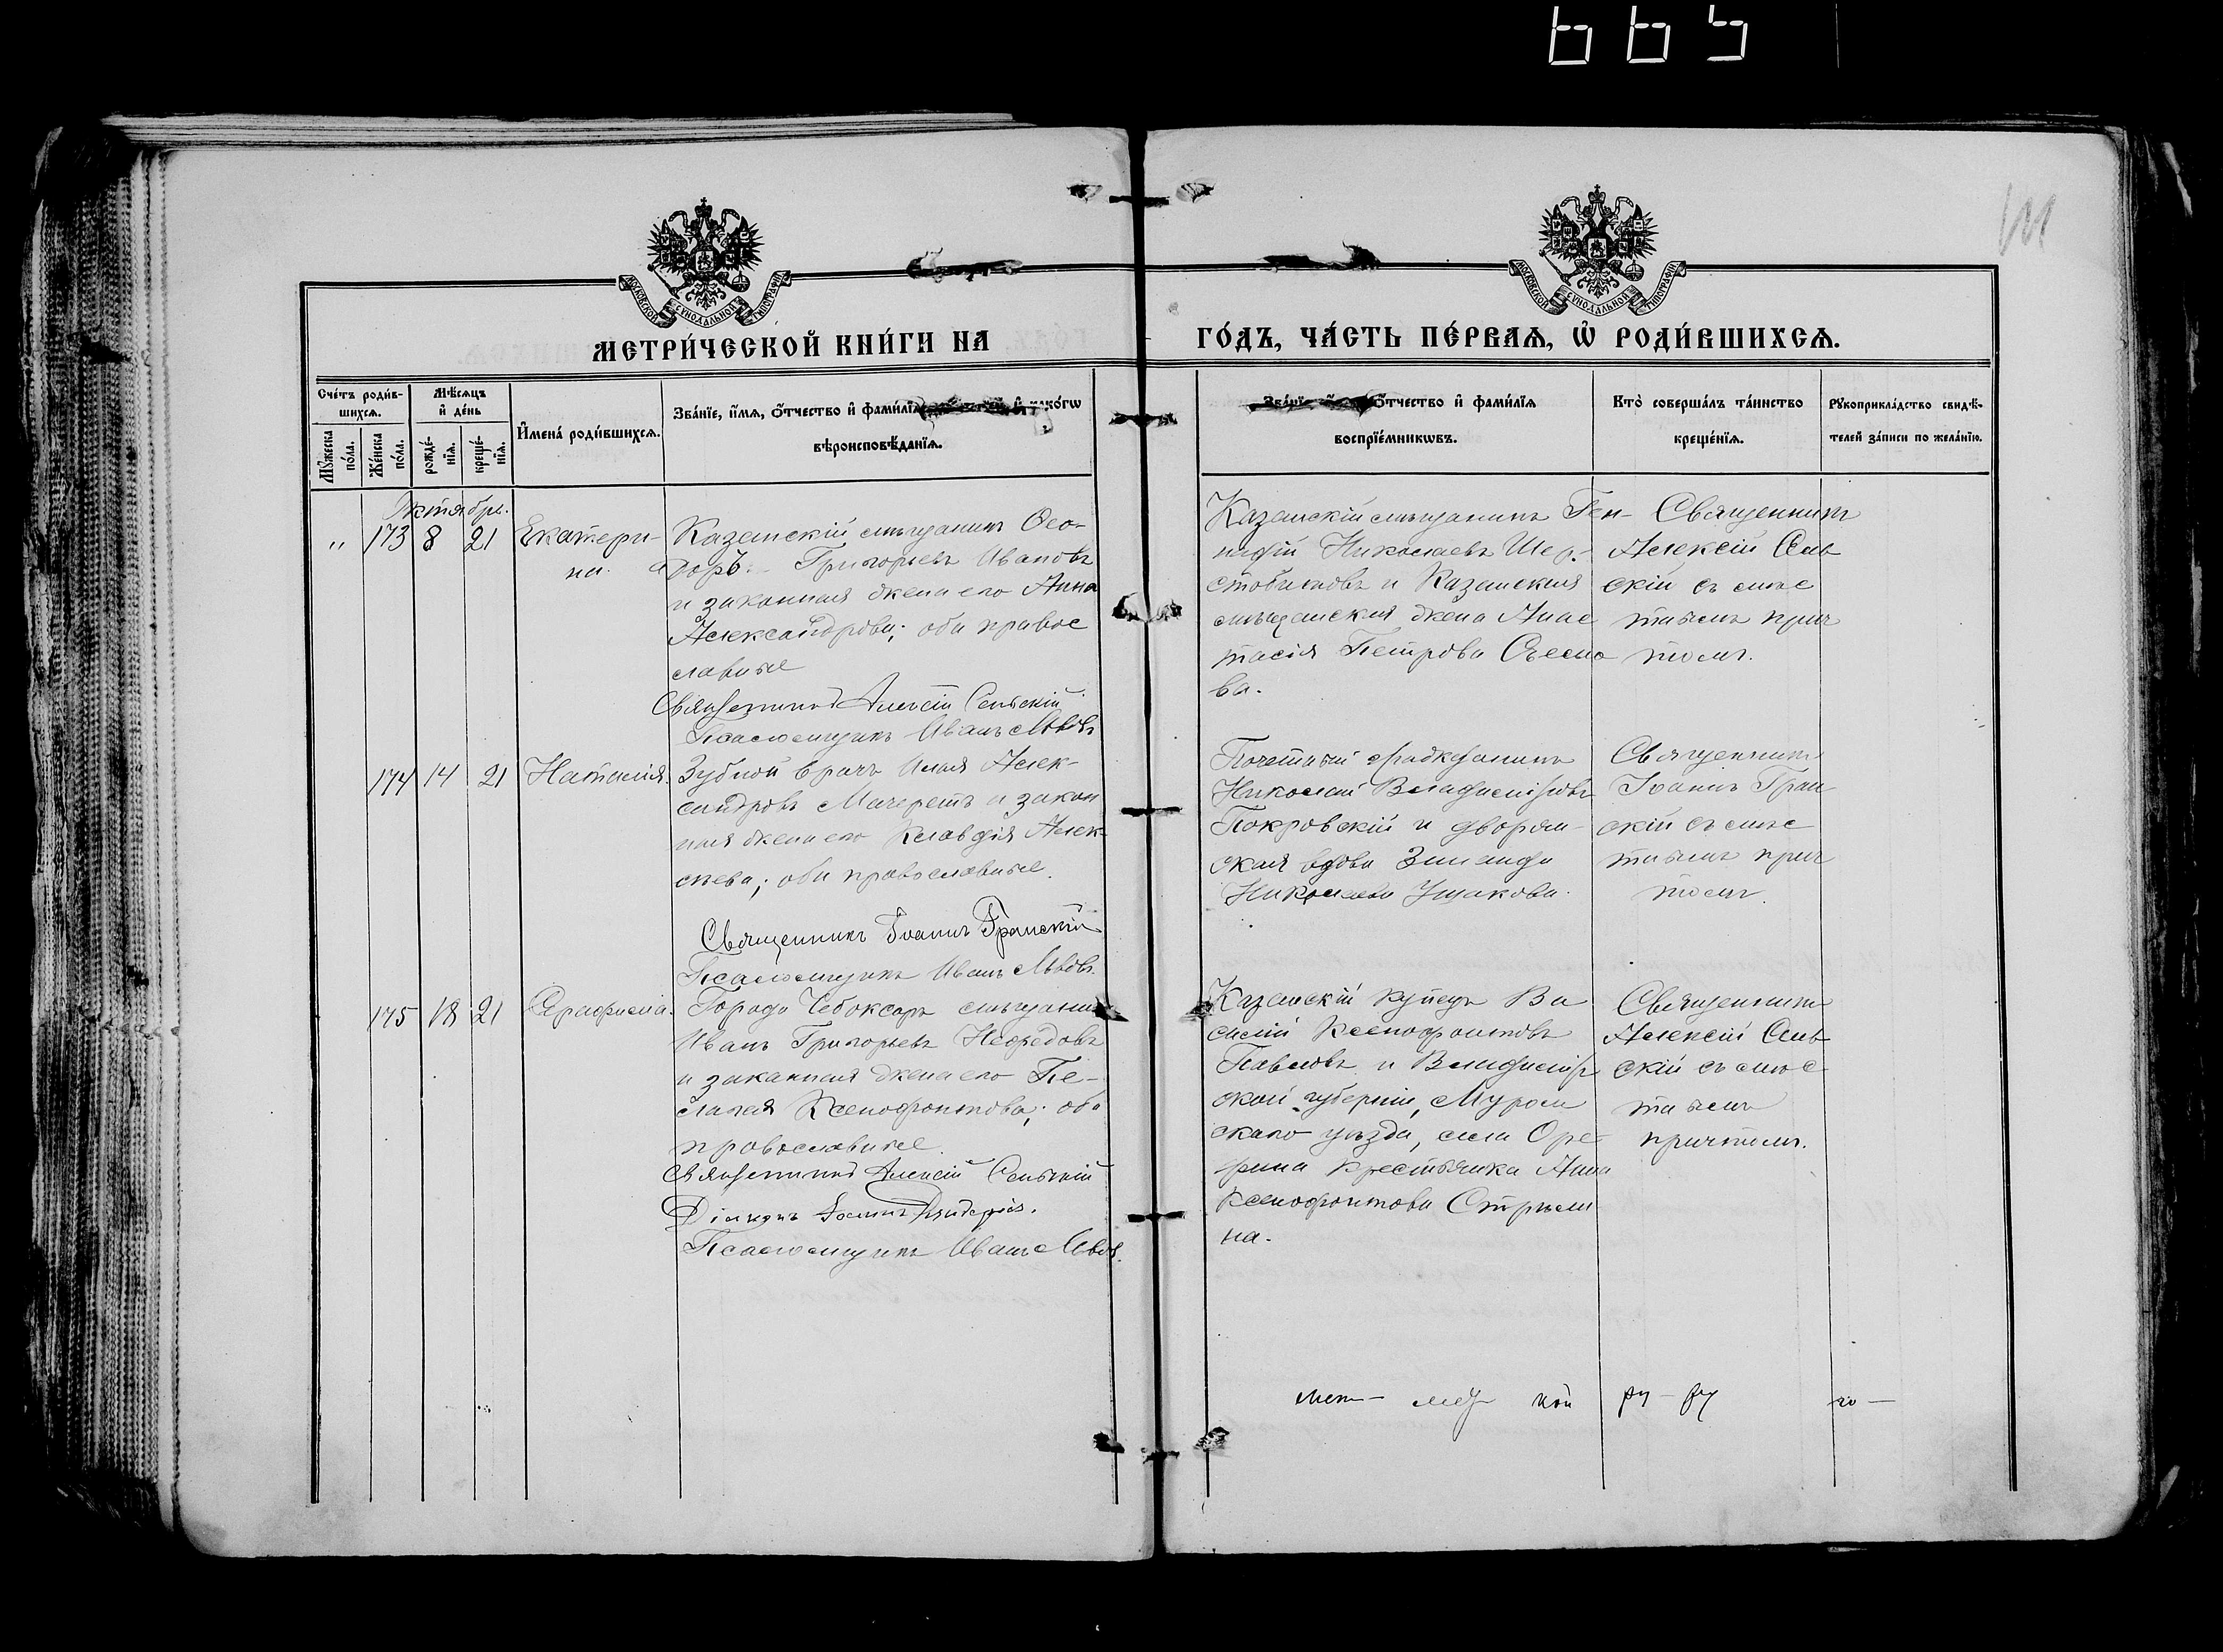 665
МОСКОВСКОЙ СУНОДАЛЬНОЙ ТИПОГРАФІИ
МОСКОВСКОЙ СУНОДАЛЬНОЙ ТИПОГРАФІИ
МЕТРИ́ЧЕСКОЙ КНИ́ГИ НА
ГО́ДЪ, ЧА́СТЬ ПЕ́РВАѦ, Ѡ҆ РОДИ́ВШИХСѦ.
Сче́тъ роди́в-
шихсѧ.
Мꙋ́жеска по́ла.
Же́нска по́ла.
Мѣ́сѧцъ
и҆ де́нь
рожде́-
нїѧ.
креще́-
нїѧ.
И҆мена̀ роди́вшихсѧ.
Зва́нїе, и҆́мѧ, ѻ҆́тчество и҆ фами́лїѧ и҆ како́гѡ
вѣроисповѣ́данїѧ.
Зва́нїе ѻ҆́тчество и҆ фами́лїѧ
воспрїе́мникѡвъ.
Кто̀ соверша́лъ та́инство
креще́нїѧ.
Рꙋкоприкла́дство свидѣ́-
телей за́писи по жела́нїю.
Октября.
" 173 8 21 Екатери-
на.
Казанскій мѣщанинъ Ѳео-
доръ Григорьевъ Ивановъ
и законная жена его Анна
Александрова; оба правос
лавные
Священникъ Алексій Сельскій
Псаломщикъ Иванъ Львовъ
Казанскій мѣщанинъ Ген-
надій Николаевъ Шер-
стобитовъ и Казанская
мѣщанская жена Анас
тасія Петрова
ва.
Священникъ
Алексій Сель
скій съ мѣс
тнымъ прич
томъ.
174 14 21 Наталія.
Зубной врачъ Илія Алек-
сандровъ Мачеретъ и закон
ная жена его Клавдія Алек-
сѣева; оба православные.
Священникъ Іоаннъ Гранскій
Псаломщикъ Иванъ Львовъ.
Почетный гражданинъ
Николай Владиміровъ
Покровскій и дворян-
ская вдова Зинаида
Николаева Ушакова.
Священникъ
Іоаннъ Гран-
скій съ мѣс
тнымъ прич
томъ.
175 18 21 Серафима.
Города Чебоксаръ мѣщанинъ
Иванъ Григорьевъ Нефедовъ
и законная жена его Пе-
лагея Ксенофонтова; оба
православные.
Священникъ Алексій Сельскій
Діаконъ Іоаннъ
Псаломщикъ Иванъ Львовъ.
Казанскій купецъ Ва
силій Ксенофонтовъ
Павловъ и Владимір
ской губерніи, Муром
скаго уѣзда, села
крестьянка Анна
Ксенофонтова Стрѣлки
на.
Священникъ
Алексій Сель
скій съ мѣс
тнымъ
причтомъ.